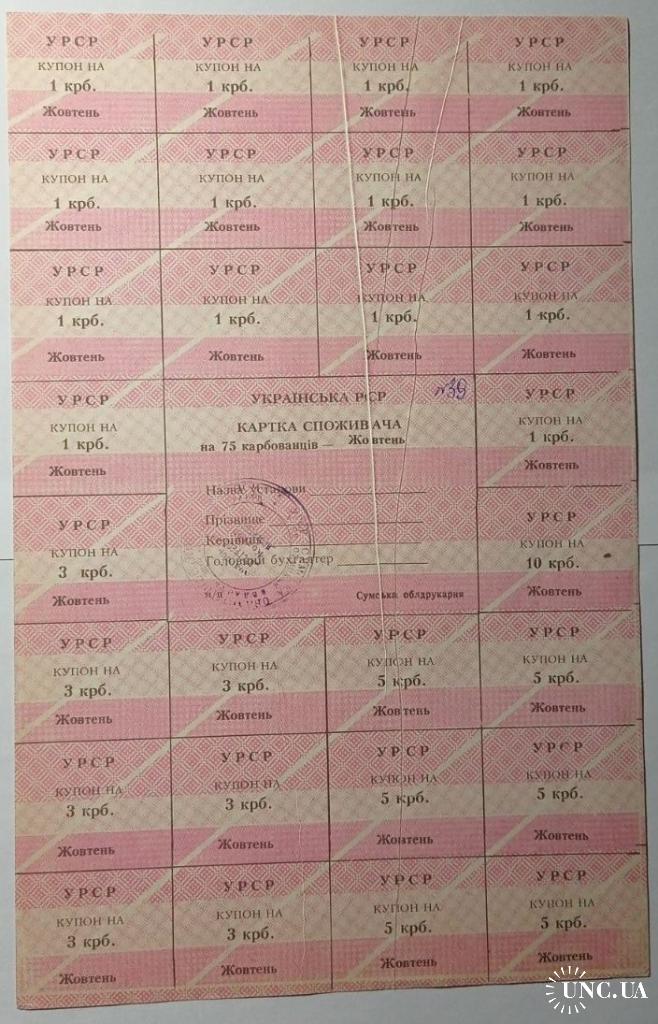 УРСР УРСР УРСР УРСР
КУПОН НА КУПОН НА КУПОН НА КУПОН НА
1 крб. 1 крб. 1 крб. 1 крб.
Жовтень Жовтень Жовтень Жовтень
УРСР УРСР УРСР УРСР
КУПОН НА КУПОН НА КУПОН НА КУПОН НА
1 крб. 1 крб. 1 крб. 1 крб.
Жовтень Жовтень Жовтень Жовтень
УРСР УРСР УРСР УРСР
КУПОН НА КУПОН НА КУПОН НА КУПОН НА
1 крб. 1 крб. 1 крб. 1 крб.
Жовтень Жовтень Жовтень Жовтень
УРСР
КУПОН НА
1 крб.
Жовтень
УКРАЇНСЬКА РСР №39
КАРТКА СПОЖИВАЧА
на 75 карбованців — Жовтень
Назва установи
Прізвище
Керівник
Головний бухгалтер
м/п Сумська облдрукарня
УРСР
КУПОН НА
1 крб.
Жовтень
УРСР
КУПОН НА
3 крб.
Жовтень
УРСР
КУПОН НА
10 крб.
Жовтень
УРСР УРСР УРСР УРСР
КУПОН НА КУПОН НА КУПОН НА КУПОН НА
3 крб. 3 крб. 5 крб. 5 крб.
Жовтень Жовтень Жовтень Жовтень
УРСР УРСР УРСР УРСР
КУПОН НА КУПОН НА КУПОН НА КУПОН НА
3 крб. 3 крб. 5 крб. 5 крб.
Жовтень Жовтень Жовтень Жовтень
УРСР УРСР УРСР УРСР
КУПОН НА КУПОН НА КУПОН НА КУПОН НА
3 крб. 3 крб. 5 крб. 5 крб.
Жовтень Жовтень Жовтень Жовтень
UNC.UA